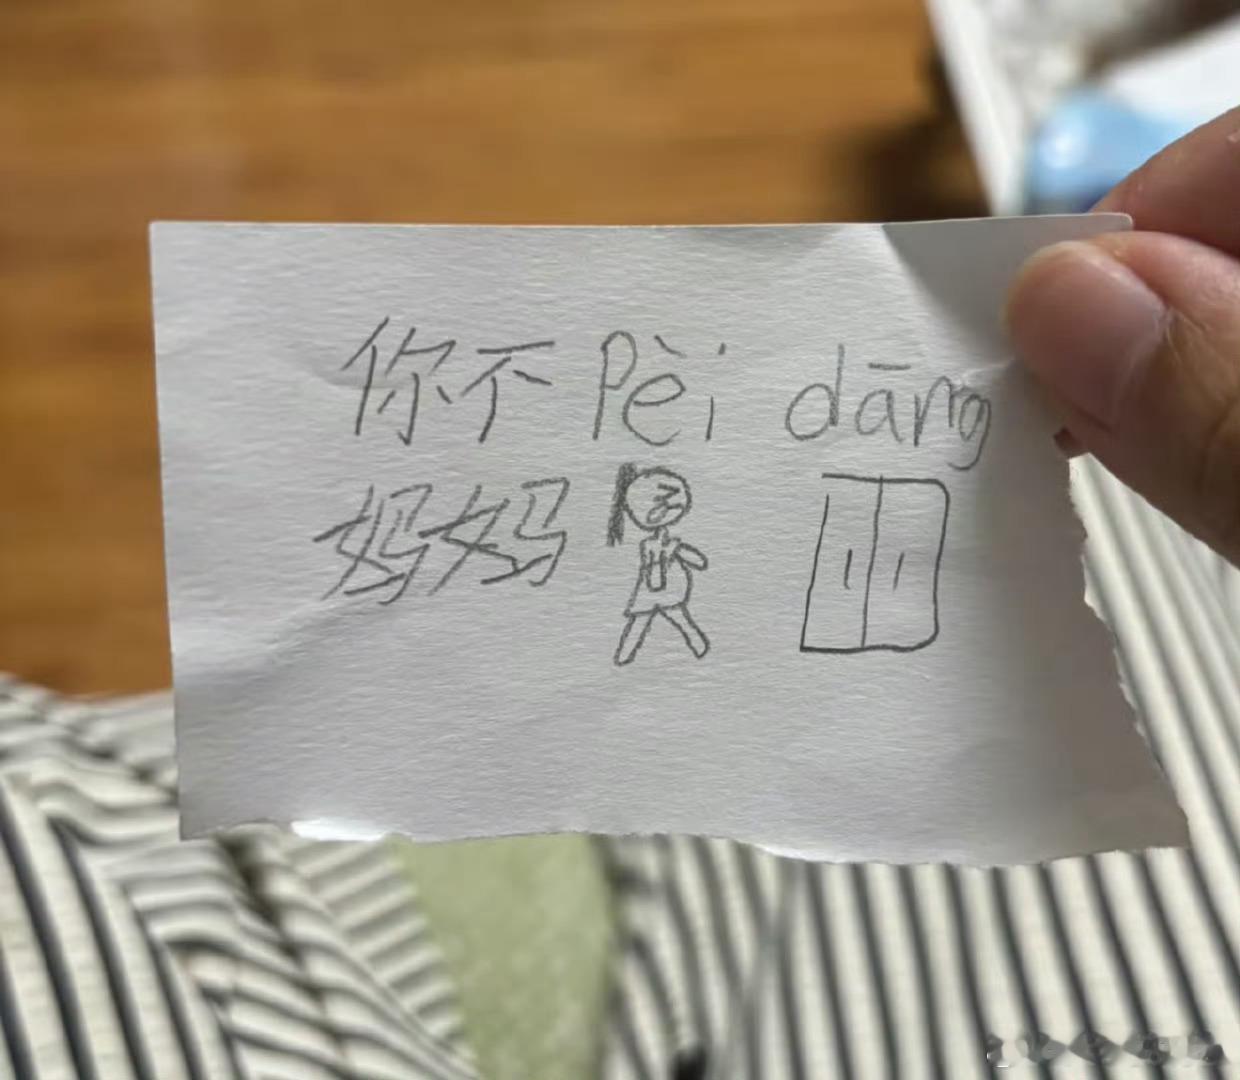 你不pèi dāng
妈妈